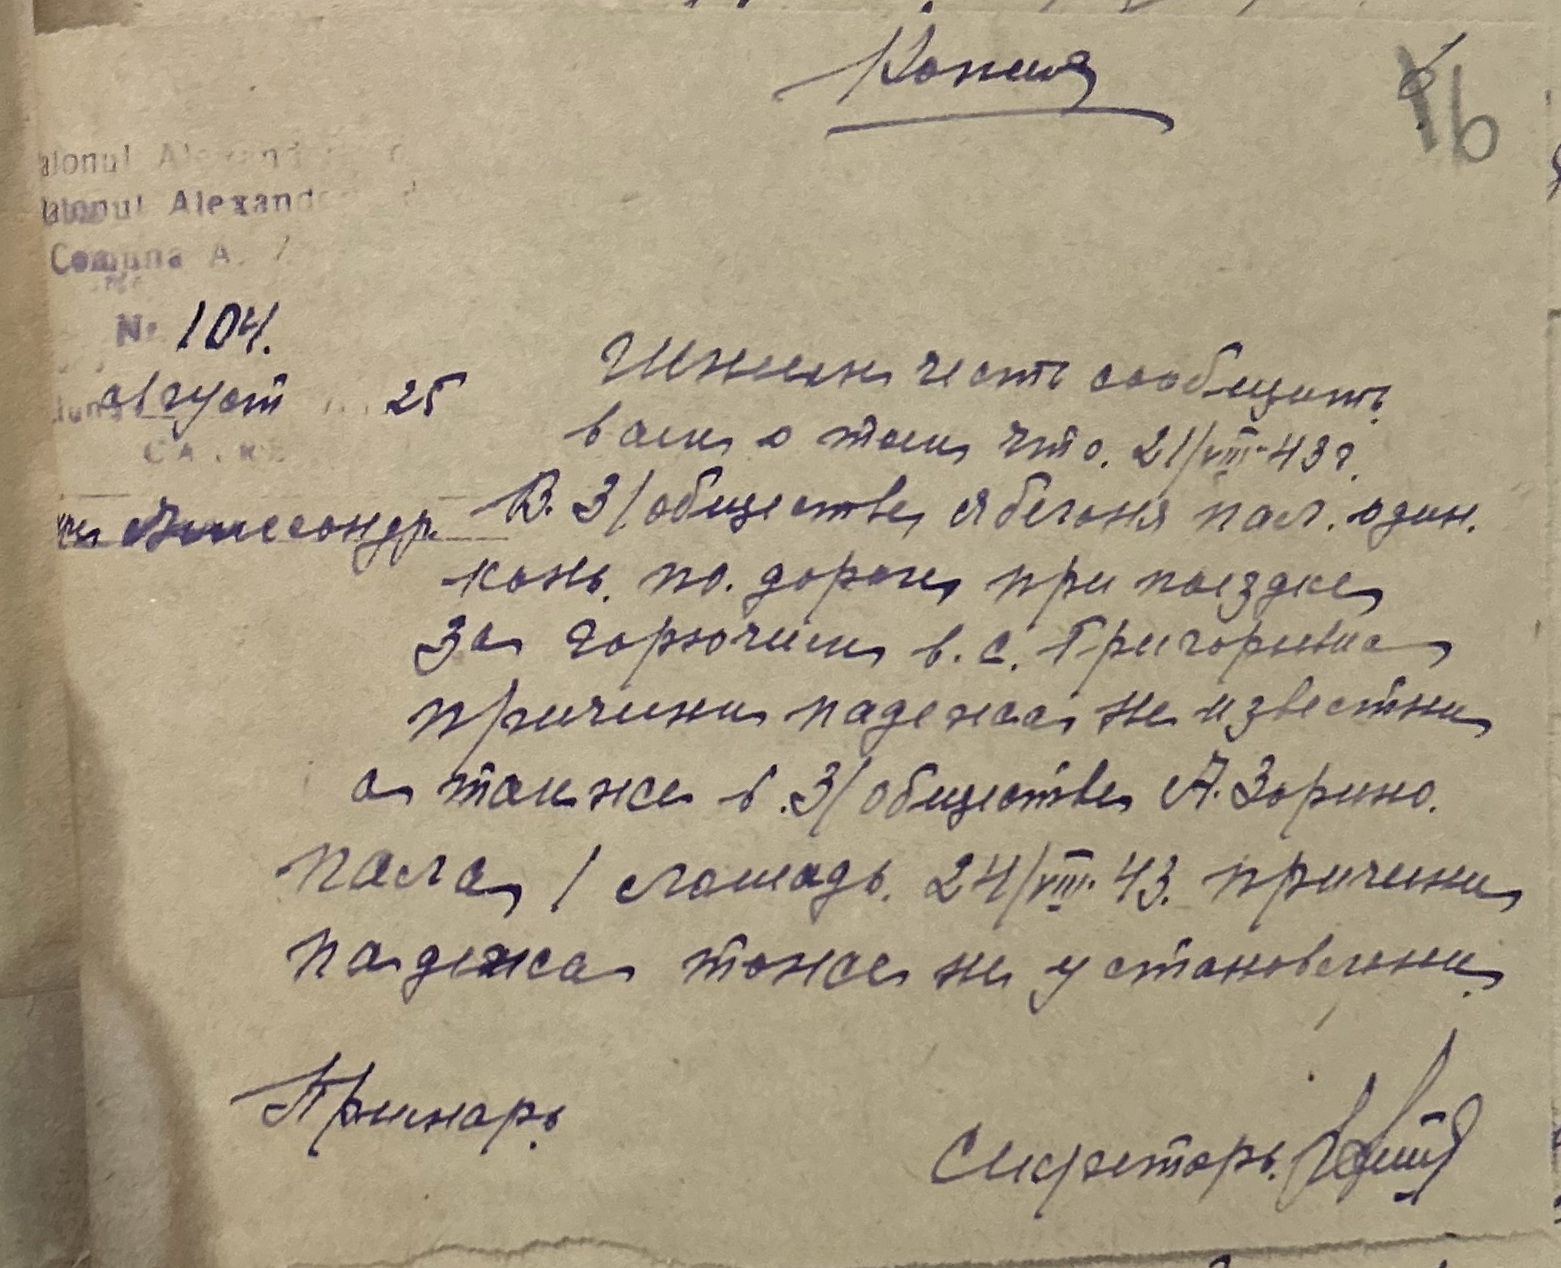 Копия
16
alonul Alexand
alonul Alexand
Comuna A.
No 104.
август 25
Имеем честь сообщить
вам о том что. 21/VIII-43 г.
В. З/обществе пал. один.
конь. по. дороге при поездке
за горючим в. с. Григорьевка
причини падежа не известни
а также в. З/обществе А. Зорино.
пала 1 лошадь. 24/VIII-43. причини
падежа тоже не установлени.
Примарь.
Секреторь.